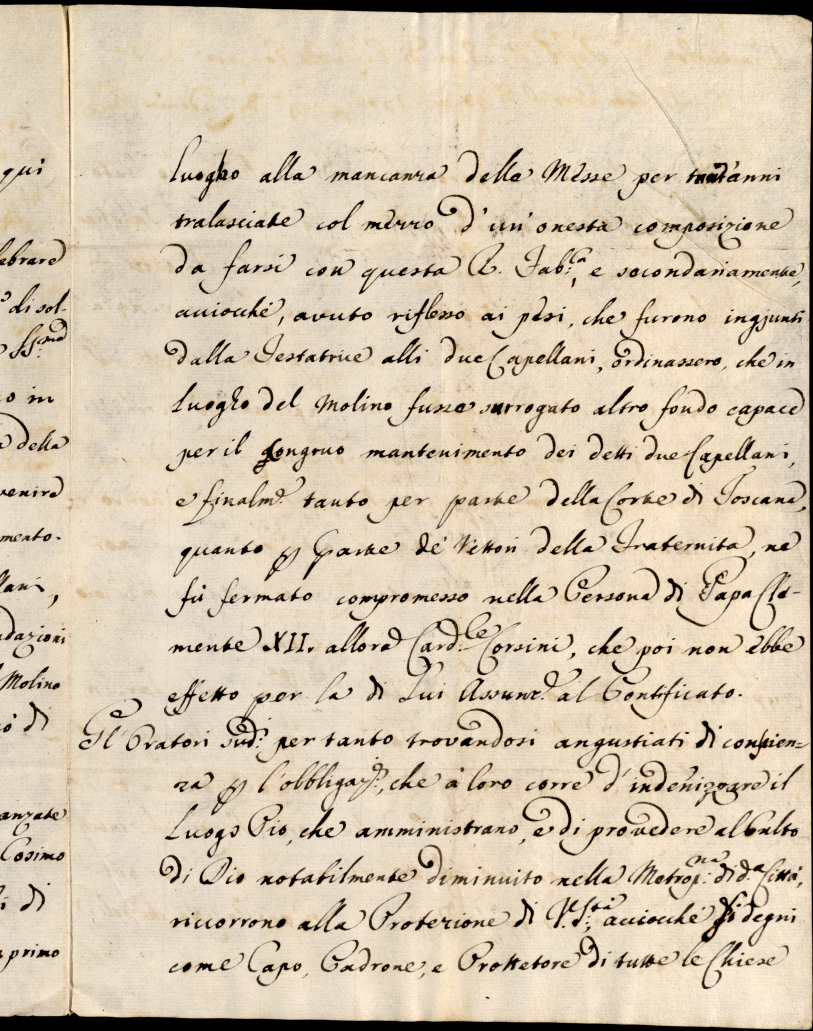 qui
lebrare
di sol-
SS.mo
o in
della
venire
mento.
llani,
ndazioni
Molino
di
anzate
Cosimo
di
primo
luogho alla mancanza delle Messe per tant'anni
tralasciate col mezzo d'un'onesta composizione
da farsi con questa R. Fab.ca, e secondariamente,
acciocché, avuto riflesso ai pesi, che furono ingiunti
dalla Testatrice alli due Capellani, ordinassero, che in
luogho del Molino fusse surrogato altro fondo capace
per il congruo mantenimento dei detti due Capellani,
e finalm.e tanto per parte della Corte di Toscana,
quanto p Parte de' Rettori della Fraternita, ne
fù fermato compromesso nella Persona di Papa Cle-
mente XII. allora Card.le Corsini, che poi non ebbe
effetto per la di Lui Assunz.e al Pontificato.
Gl'Oratori sud.i per tanto trovandosi angustiati di conscien-
za p l'obbligaz.e, che à loro corre d'indenizzare il
Luogo Pio, che amministrano, e di provedere al Culto
di Dio notabilmente diminuito nella Metrop.na di d.a Città,
riccorrono alla Protezione di V. S.tà acciocché si degni
come Capo, Padrone, e Prottetore di tutte le Chiese